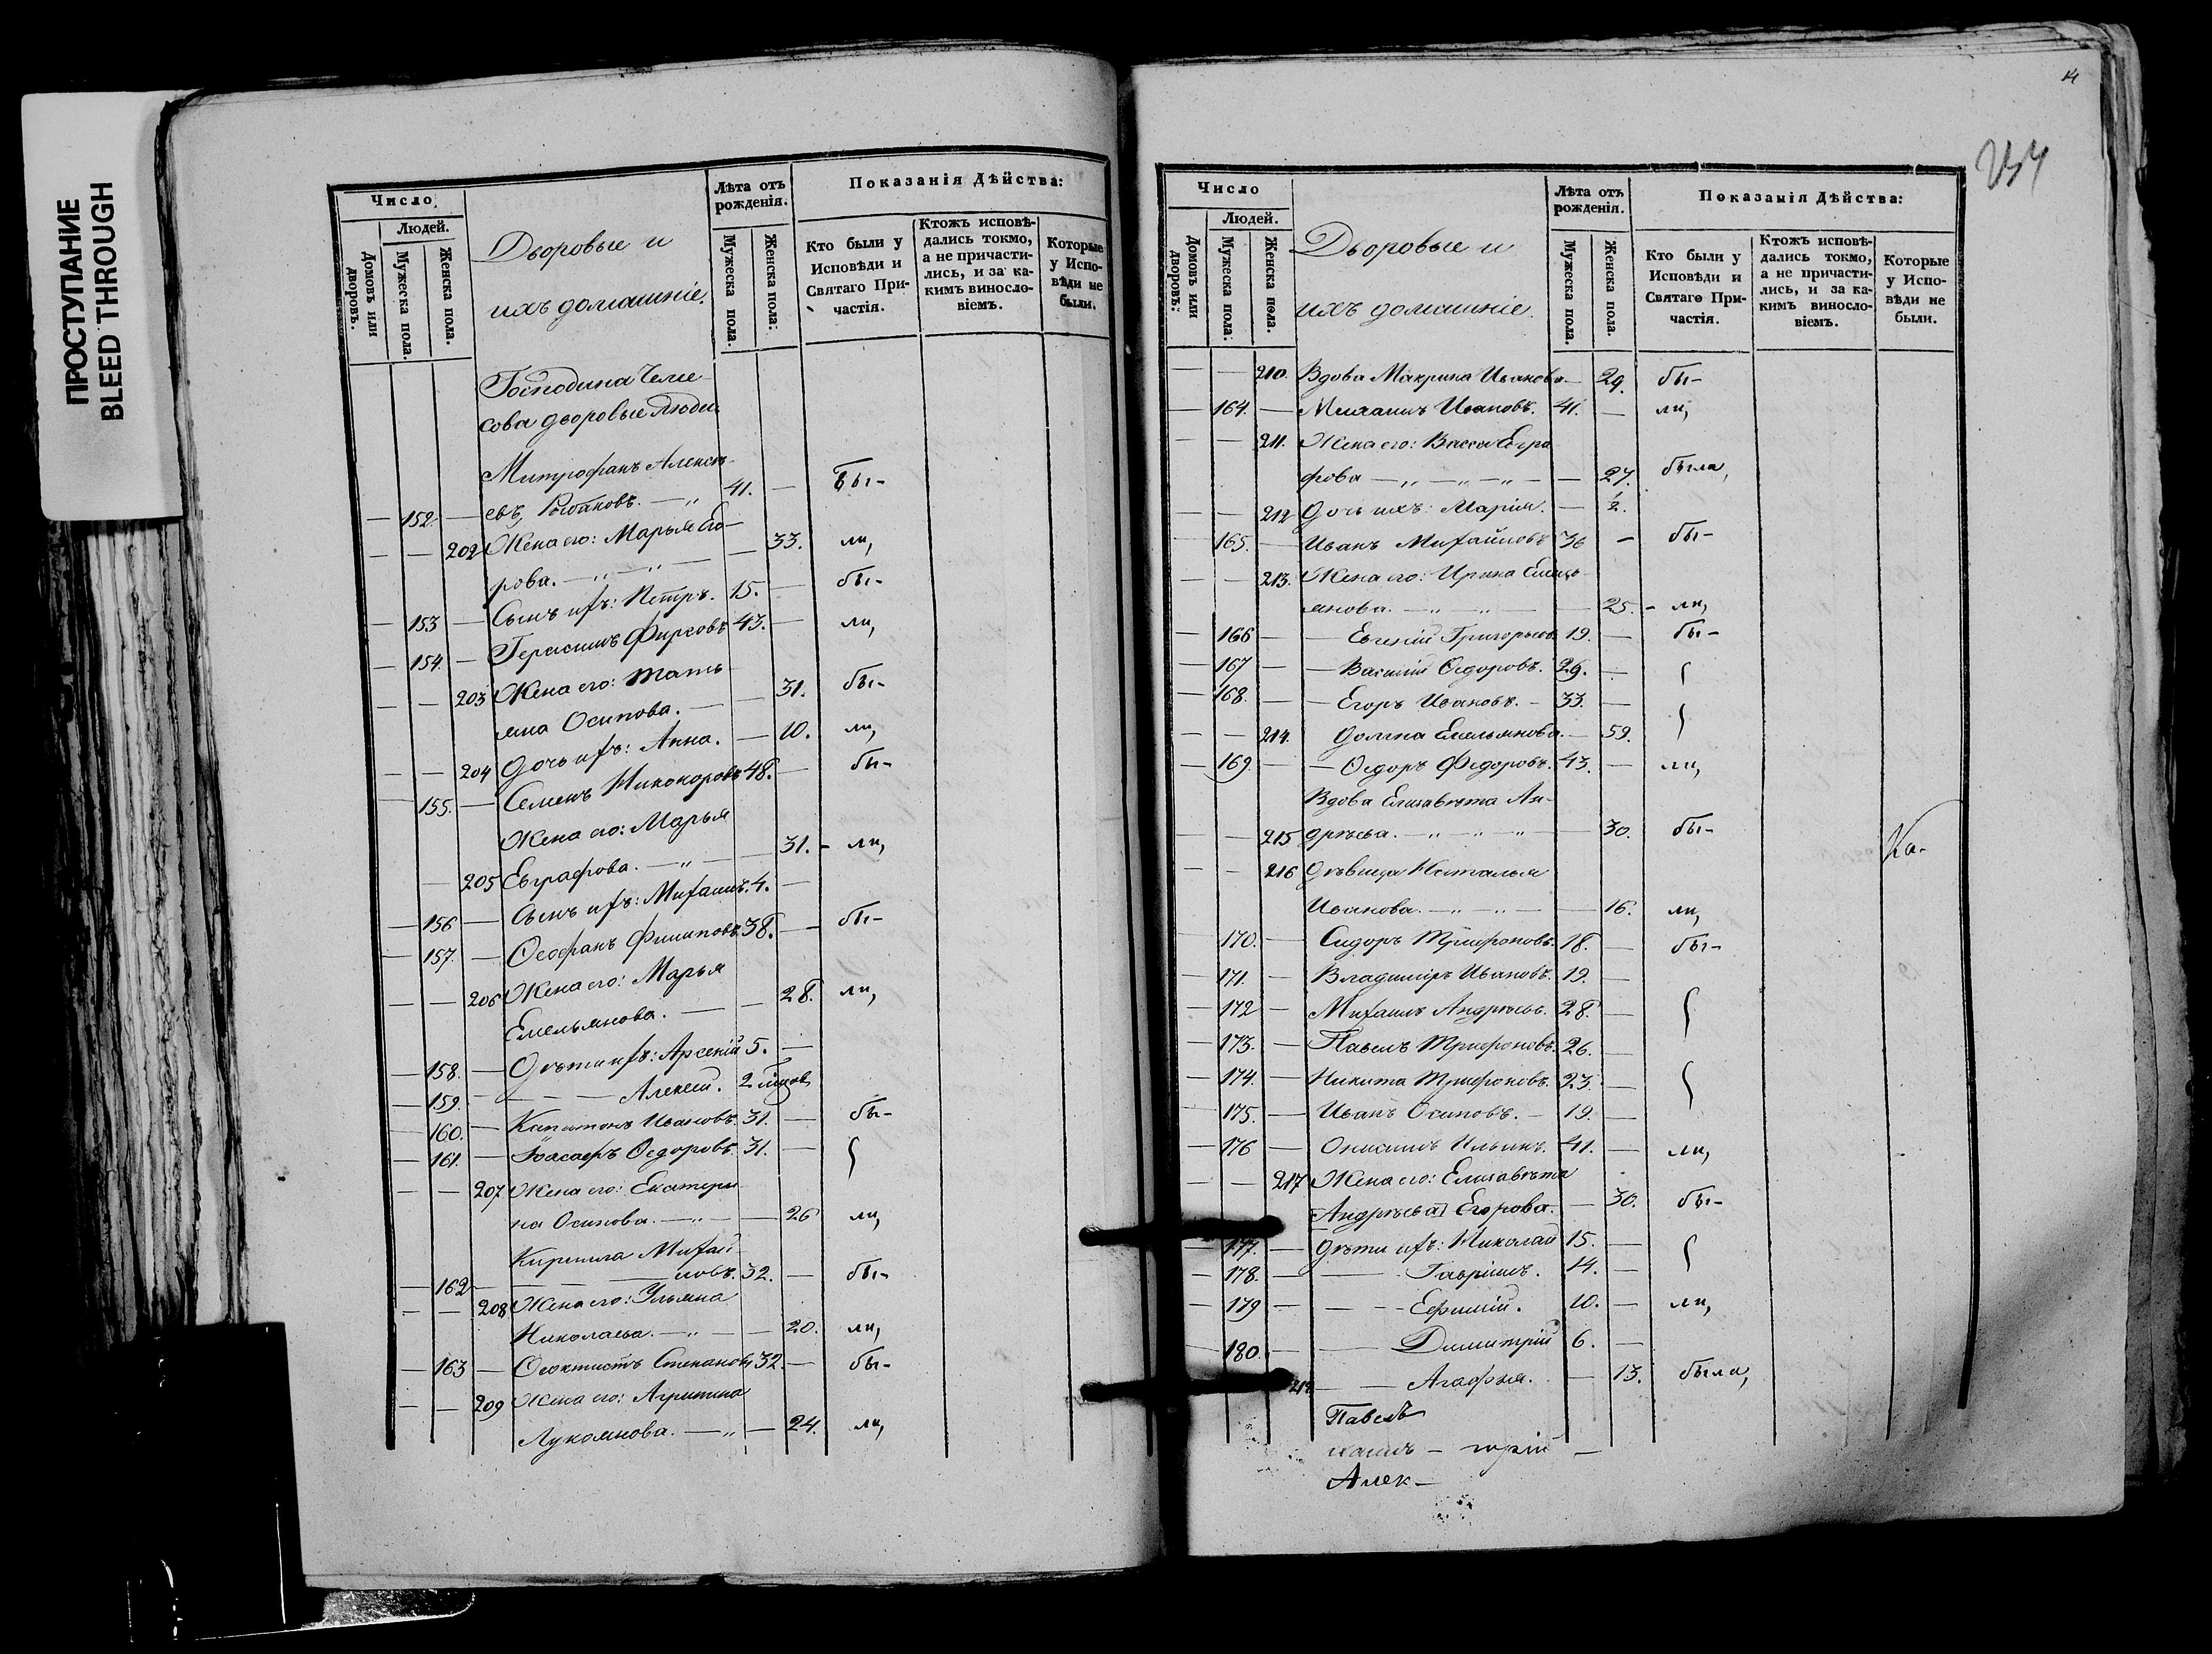 ПРОСТУПАНИЕ
BLEED THROUGH
Число
Людей.
Домовъ или дворовъ.
Мужеска пола.
Женска пола.
Дворовые и
ихъ домашніе.
Лѣта отъ рожденія.
Мужеска пола.
Женска пола.
Показанія Дѣйства:
Кто были у Исповѣди и Святаго Причастія.
Ктожъ исповѣдались токмо, а не причастились, и за какимъ винословіемъ.
Которые у Исповѣди не были.
Господина Челисова
дворовые люди
Митрофанъ Алексѣ-
— 152 — евъ, — „ 41. — бы-
— — 202 Жена его: Марья Его-
рова. — „ — „ — — 33. ли,
— 153 — Сынъ ихъ: Петръ. 15. — бы-
— 154. — Герасимъ Фирсовъ 43. — ли,
— — 203 Жена его: Тать
яна Осипова. — — 31. бы-
— — 204 Дочь ихъ: Анна. — 10. ли,
— 155. — Семенъ Никоноровъ 48. — бы-
Жена его: Марья
— 205 Евграфова. — „ — — 31. - ли,
— 156 — Сынъ ихъ: Михаилъ. 4. —
— 157. — Ѳеофанъ Филиповъ. 38. — бы-
— — 206 Жена его: Марья
Емельянова. — — 28. ли,
— 158. — Дѣти ихъ: Арсеній 5. —
— 159. — — — Алексій. 2
— 160. — Капитонъ Ивановъ. 31. — бы-
— 161. — Іоасафъ Ѳедоровъ. 31. —
— — 207 Жена его: Екатери
на Осипова. — „ — — 26 ли,
Кирилла Михай
— 162 — — ловъ. 32. — бы-
— — 208 Жена его: Ульяна
Николаева. — „ — — 20. ли,
— 163 — Ѳеоктистъ Степановъ 32 — бы-
— — 209 Жена его: Агрипина
Лукоянова. — „ — 24. ли,
14
Число
Людей.
Домовъ или дворовъ:
Мужеска пола:
Женска пола.
Дворовые и
ихъ домашніе.
Лѣта отъ рожденія.
Мужеска пола.
Женска пола.
Показанія Дѣйства:
Кто были у Исповѣди и Святаго Причастія.
Ктожъ исповѣдались токмо, а не причастились, и за какимъ винословіемъ.
Которые у Исповѣди не были.
— — 210. Вдова Макрина Иванова — 29. бы-
— 164. — Михаилъ Ивановъ. 41. — ли,
— — 211. Жена его: Васса Евгра
фова — „ — „ — „ — — 27. была,
— — 212 Дочь ихъ: Марія. — ½.
165. — Иванъ Михайловъ 36 — бы-
— — 213. Жена его: Ирина Емель
янова. — „ — „ — — 25. - ли,
— 166 — — Евгеній Григорьевъ 19. — бы-
— 167 — — Василій Ѳедоровъ. 29. —
— 168. — — Егоръ Ивановъ. — 33. —
— — 214. Домна Емельянова. — 59.
— 169. — — Ѳедоръ Федоровъ. 43. — ли,
Вдова Елисавета Ан-
— — 215 дрѣева. — „ — „ — „ — 30. бы-
— — 216 Дѣвица Наталья
Иванова. — „ — „ — — 16. ли,
— 170. — Сидоръ Трифоновъ. 18. — бы-
— 171. — Владиміръ Ивановъ. 19. —
— 172 — Михаилъ Андрѣевъ. 28. —
— 173. — Павелъ Трифоновъ. 26. —
— 174. — Никита Трифоновъ. 23. —
— 175. — Иванъ Осиповъ. — 19. —
— 176 — Онисимъ Ильинъ. 41. — ли,
— — 217 Жена его: Елисавѣта
[Андрѣева] Егорова. — 30. бы-
177. — Дѣти ихъ: Николай 15. —
— 178. — — Гавріилъ. 14. —
— 179 — — Ефимій. 10. — ли,
— 180. — — Димитрій 6. —
218 — — Агафья. — 13. была,
Ка-
Павелъ
Алек —